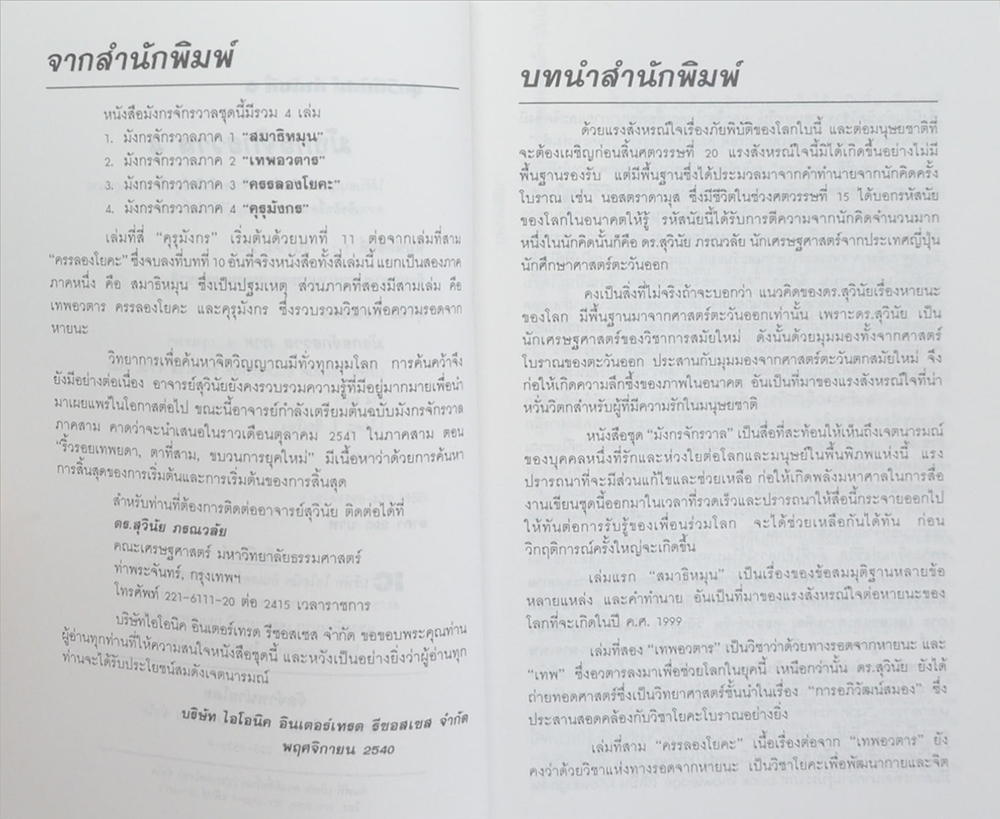 จากสำนักพิมพ์
หนังสือมังกรจักรวาลชุดนี้มีรวม 4 เล่ม
1. มังกรจักรวาลภาค 1 "สมาธิหมุน"
2. มังกรจักรวาลภาค 2 "เทพอวตาร"
3. มังกรจักรวาลภาค 3 "ครรลองโยคะ"
4. มังกรจักรวาลภาค 4 "คุรุมังกร"
เล่มที่สี่ "คุรุมังกร" เริ่มต้นด้วยบทที่ 11 ต่อจากเล่มที่สาม
"ครรลองโยคะ" ซึ่งจบลงที่บทที่ 10 อันที่จริงหนังสือทั้งสี่เล่มนี้ แยกเป็นสองภาค
ภาคหนึ่ง คือ สมาธิหมุน ซึ่งเป็นปฐมเหตุ ส่วนภาคที่สองมีสามเล่ม คือ
เทพอวตาร ครรลองโยคะ และคุรุมังกร ซึ่งรวบรวมวิชาเพื่อความรอดจาก
หายนะ
วิทยาการเพื่อค้นหาจิตวิญญาณมีทั่วทุกมุมโลก การค้นคว้าจึง
ยังมีอย่างต่อเนื่อง อาจารย์สุวินัยยังคงรวบรวมความรู้ที่มีอยู่มากมายเพื่อนำ
มาเผยแพร่ในโอกาสต่อไป ขณะนี้อาจารย์กำลังเตรียมต้นฉบับมังกรจักรวาล
ภาคสาม คาดว่าจะนำเสนอในราวเดือนตุลาคม 2541 ในภาคสาม ตอน
"ริ้วรอยเทพยดา, ตาที่สาม, ขบวนการยุคใหม่" มีเนื้อหาว่าด้วยการค้นหา
การสิ้นสุดของการเริ่มต้นและการเริ่มต้นของการสิ้นสุด
สำหรับท่านที่ต้องการติดต่ออาจารย์สุวินัย ติดต่อได้ที่
ดร.สุวินัย ภรณวลัย
คณะเศรษฐศาสตร์ มหาวิทยาลัยธรรมศาสตร์
ท่าพระจันทร์, กรุงเทพฯ
โทรศัพท์ 221-6111-20 ต่อ 2415 เวลาราชการ
บริษัทไอโอนิค อินเตอร์เทรด รีซอสเซส จำกัด ขอขอบพระคุณท่าน
ผู้อ่านทุกท่านที่ให้ความสนใจหนังสือชุดนี้ และหวังเป็นอย่างยิ่งว่าผู้อ่านทุก
ท่านจะได้รับประโยชน์สมดังเจตนารมณ์
บริษัท ไอโอนิค อินเตอร์เทรด รีซอสเซส จำกัด
พฤศจิกายน 2540
บทนำสำนักพิมพ์
ด้วยแรงสังหรณ์ใจเรื่องภัยพิบัติของโลกใบนี้ และต่อมนุษยชาติที่
จะต้องเผชิญก่อนสิ้นศตวรรษที่ 20 แรงสังหรณ์ใจนี้มิได้เกิดขึ้นอย่างไม่มี
พื้นฐานรองรับ แต่มีพื้นฐานซึ่งได้ประมวลมาจากคำทำนายจากนักคิดครั้ง
โบราณ เช่น นอสตราดามุส ซึ่งมีชีวิตในช่วงศตวรรษที่ 15 ได้บอกรหัสนัย
ของโลกในอนาคตให้รู้ รหัสนัยนี้ได้รับการตีความจากนักคิดจำนวนมาก
หนึ่งในนักคิดนั้นก็คือ ดร.สุวินัย ภรณวลัย นักเศรษฐศาสตร์จากประเทศญี่ปุ่น
นักศึกษาศาสตร์ตะวันออก
คงเป็นสิ่งที่ไม่จริงถ้าจะบอกว่า แนวคิดของดร.สุวินัยเรื่องหายนะ
ของโลก มีพื้นฐานมาจากศาสตร์ตะวันออกเท่านั้น เพราะดร.สุวินัย เป็น
นักเศรษฐศาสตร์ของวิชาการสมัยใหม่ ดังนั้นด้วยมุมมองทั้งจากศาสตร์
โบราณของตะวันออก ประสานกับมุมมองจากศาสตร์ตะวันตกสมัยใหม่ จึง
ก่อให้เกิดความลึกซึ้งของภาพในอนาคต อันเป็นที่มาของแรงสังหรณ์ใจที่น่า
หวั่นวิตกสำหรับผู้ที่มีความรักในมนุษยชาติ
หนังสือชุด "มังกรจักรวาล" เป็นสื่อที่สะท้อนให้เห็นถึงเจตนารมณ์
ของบุคคลหนึ่งที่รักและห่วงใยต่อโลกและมนุษย์ในพื้นพิภพแห่งนี้ แรง
ปรารถนาที่จะมีส่วนแก้ไขและช่วยเหลือ ก่อให้เกิดพลังมหาศาลในการสื่อ
งานเขียนชุดนี้ออกมาในเวลาที่รวดเร็วและปรารถนาให้สื่อนี้กระจายออกไป
ให้ทันต่อการรับรู้ของเพื่อนร่วมโลก จะได้ช่วยเหลือกันได้ทัน ก่อน
วิกฤติการณ์ครั้งใหญ่จะเกิดขึ้น
เล่มแรก "สมาธิหมุน" เป็นเรื่องของข้อสมมุติฐานหลายข้อ
หลายแหล่ง และคำทำนาย อันเป็นที่มาของแรงสังหรณ์ใจต่อหายนะของ
โลกที่จะเกิดในปี ค.ศ. 1999
เล่มที่สอง "เทพอวตาร" เป็นวิชาว่าด้วยทางรอดจากหายนะ และ
"เทพ" ซึ่งอวตารลงมาเพื่อช่วยโลกในยุคนี้ เหนือกว่านั้น ดร.สุวินัย ยังได้
ถ่ายทอดศาสตร์ซึ่งเป็นวิทยาศาสตร์ชั้นนำในเรื่อง "การอภิวัฒน์สมอง" ซึ่ง
ประสานสอดคล้องกับวิชาโยคะโบราณอย่างยิ่ง
เล่มที่สาม "ครรลองโยคะ" เนื้อเรื่องต่อจาก "เทพอวตาร" ยัง
คงว่าด้วยวิชาแห่งทางรอดจากหายนะ เป็นวิชาโยคะเพื่อพัฒนากายและจิต